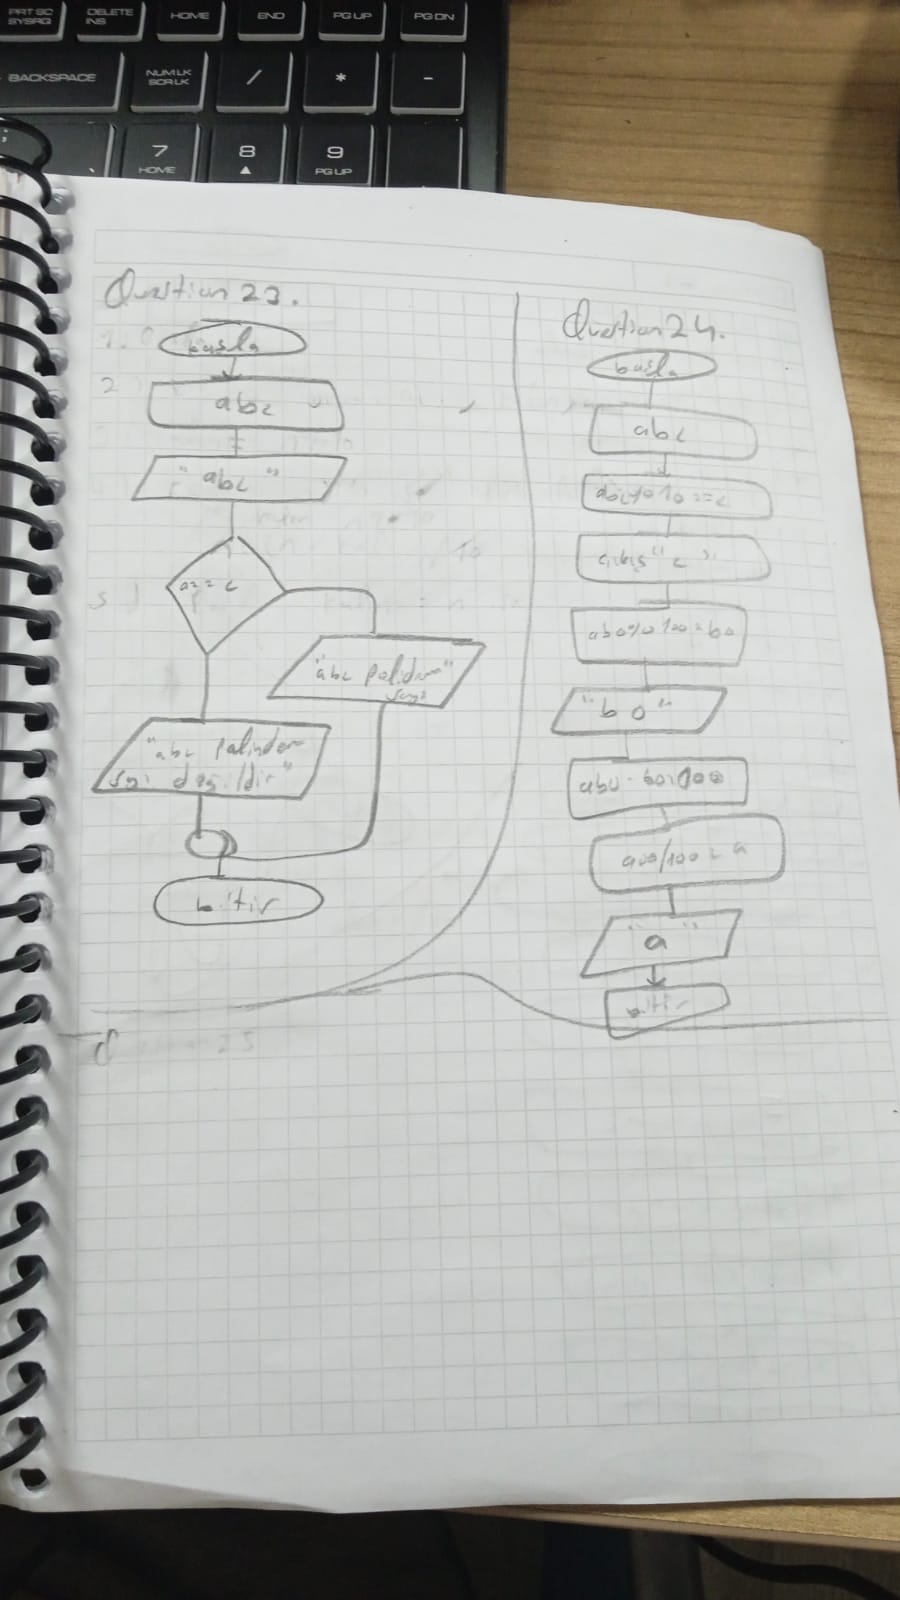 PRT SC
SYSRQ
DELETE
INS
HOME
END
PG UP
PG DN
BACKSPACE
NUM LK
SCR LK
/
*
-
7
HOME
8
▲
9
PG UP
Question 23.
başla
abc
"abc"
a == c
"abc Palidrom"
sayı
"abc Palindrom
değildir"
bitir
Question 24.
başla
abc
abc%10==c
çıkış "c"
ab0%100=b0
"b0"
ab0-b0=a00
a00/100=a
"a"
bitir